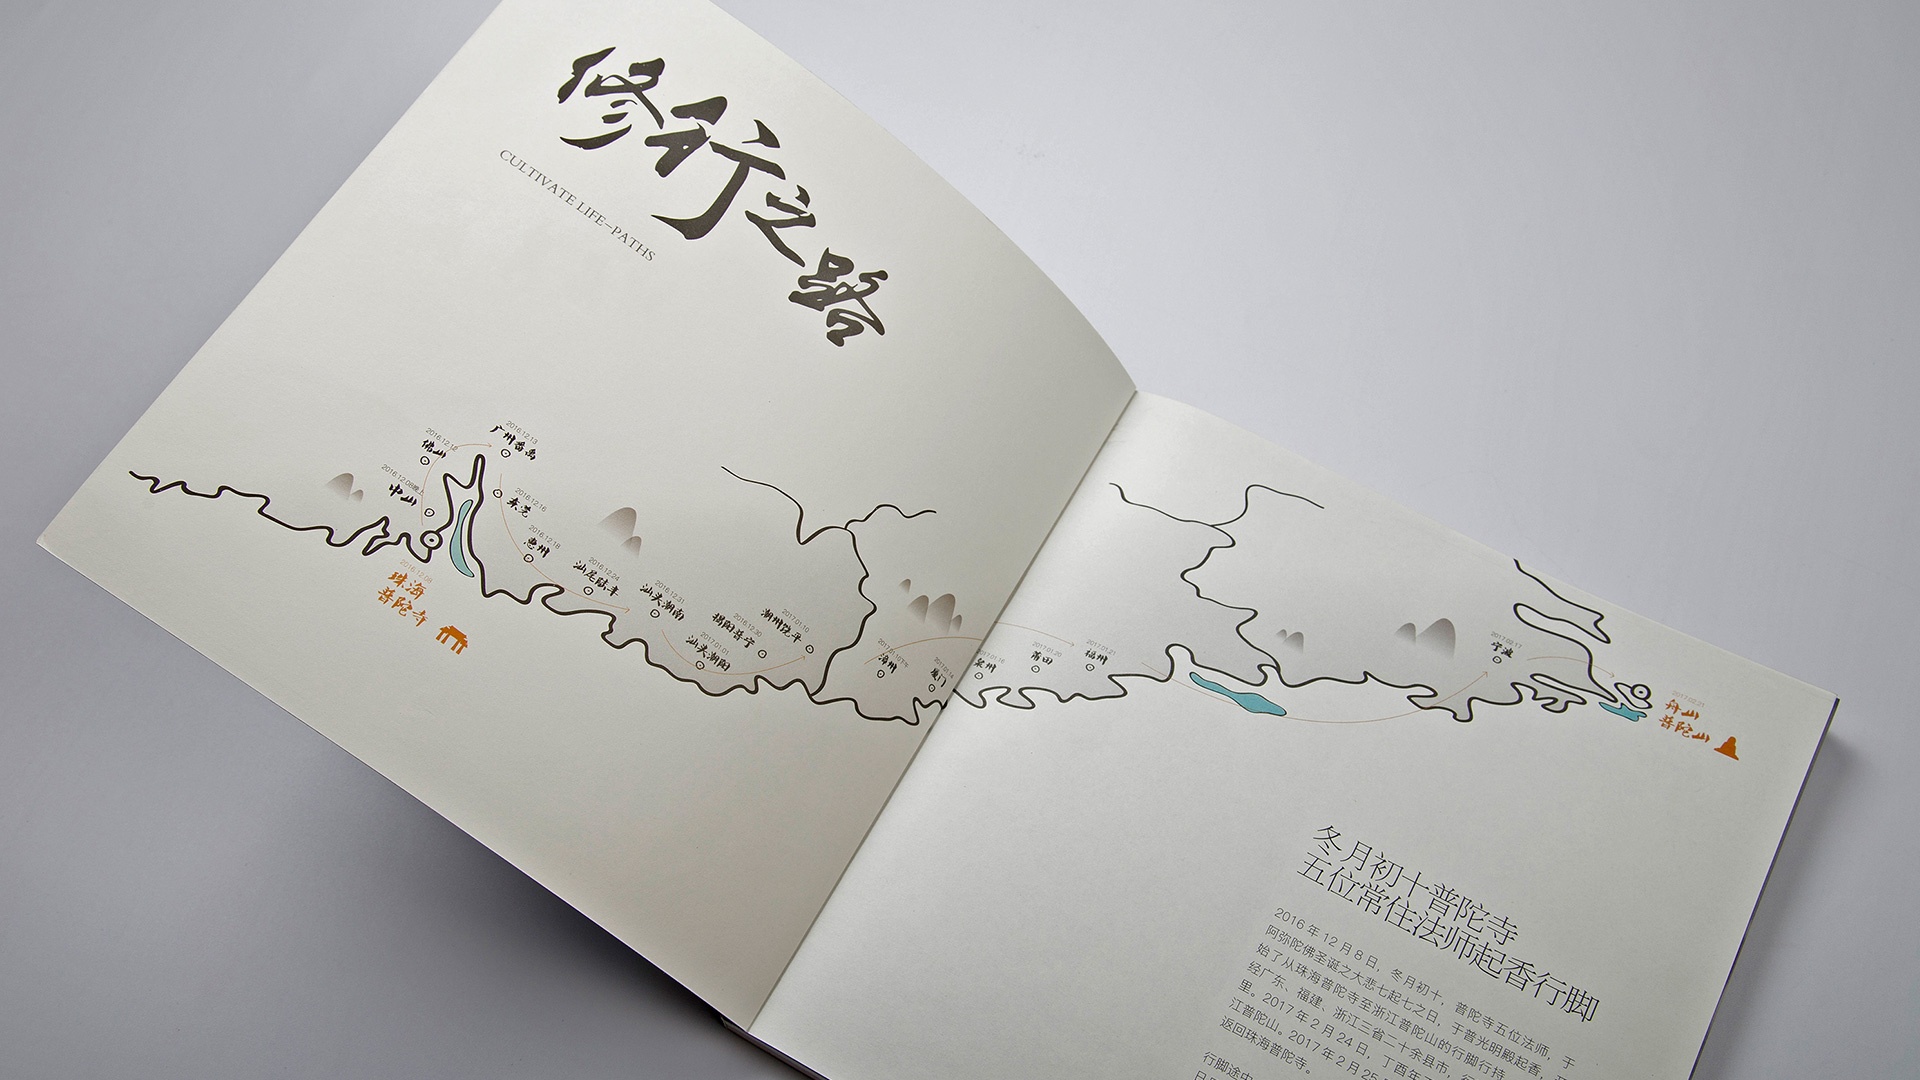 修行之路
CULTIVATE LIFE-PATHS
2016.12.13
广州番禺
2016.12.12
佛山
2016.12.09晚上
中山
2016.12.08
珠海
普陀寺
2016.12.16
东莞
2016.12.18
惠州
2016.12.24
汕尾陆丰
2016.12.31
汕头潮南
2017.01.01
汕头潮阳
2016.12.30
揭阳普宁
2017.01.10
潮州饶平
漳州
2017.01.14
厦门
2017.01.16
泉州
2017.01.20
莆田
2017.01.21
福州
2017.02.17
宁波
2017.02.23
舟山
普陀山
冬月初十普陀寺
五位常住法师起香行脚
2016 年 12 月 8 日，冬月初十，普陀寺五位法师，于
阿弥陀佛圣诞之大悲七起七之日，于普光明殿起香，开
始了从珠海普陀寺至浙江普陀山的行脚行持，
经广东、福建、浙江三省二十余县市，行
里。2017 年 2 月 24 日，丁酉年
江普陀山。2017 年 2 月 25
返回珠海普陀寺。
行脚途中